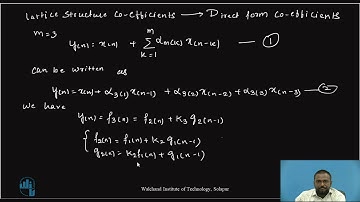 Lattice Structure Co-efficients → Direct form Co-efficients
m=3
y(n) = x(n) + Σ_{k=1}^{m} α_m(k) x(n-k) — ①
Can be written as
y(n) = x(n) + α₃(1) x(n-1) + α₃(2) x(n-2) + α₃(3) x(n-3) — ②
We have
y(n) = f₃(n) = f₂(n) + k₃ g₂(n-1)
{ f₂(n) = f₁(n) + k₂ g₁(n-1)
g₂(n) = k₂ f₁(n) + g₁(n-1)
Walchand Institute of Technology, Solapur